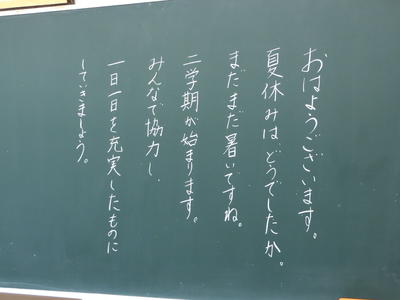 おはようございます。
夏休みはどうでしたか。
まだまだ暑いですね。
二学期が始まります。
みんなで協力し、
一日一日を充実したものに
していきましょう。